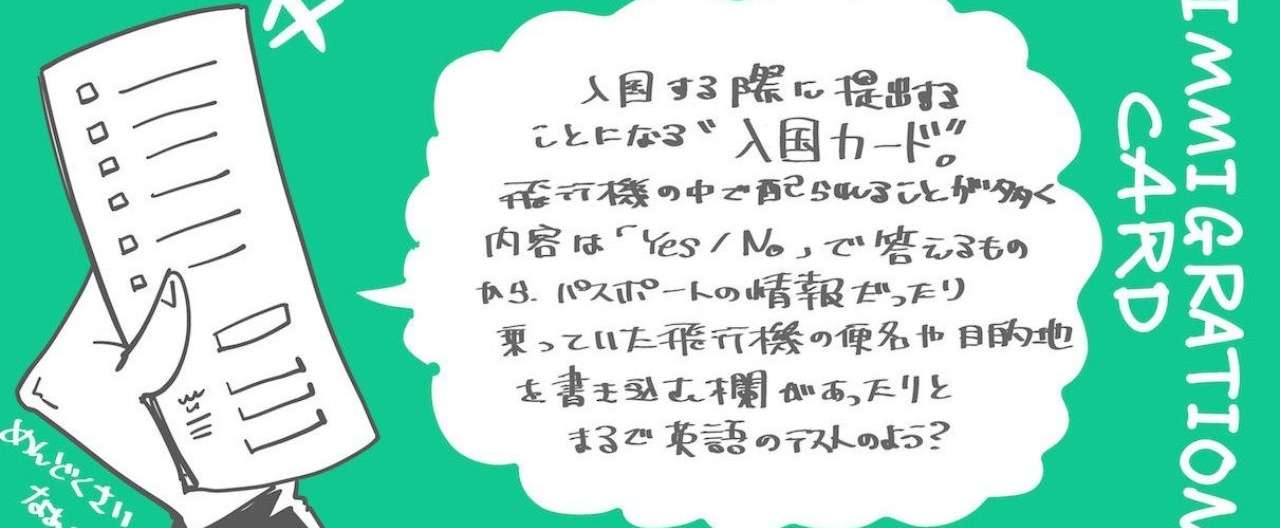 入国する際に提出する
ことになる“入国カード”。
飛行機の中で配られることが多く
内容は「Yes/No」で答えるもの
から、パスポートの情報だったり
乗っていた飛行機の便名や目的地
を書き込む欄があったりと
まるで英語のテストのよう?
IMMIGRATION
CARD
めんどくさい
なぁ